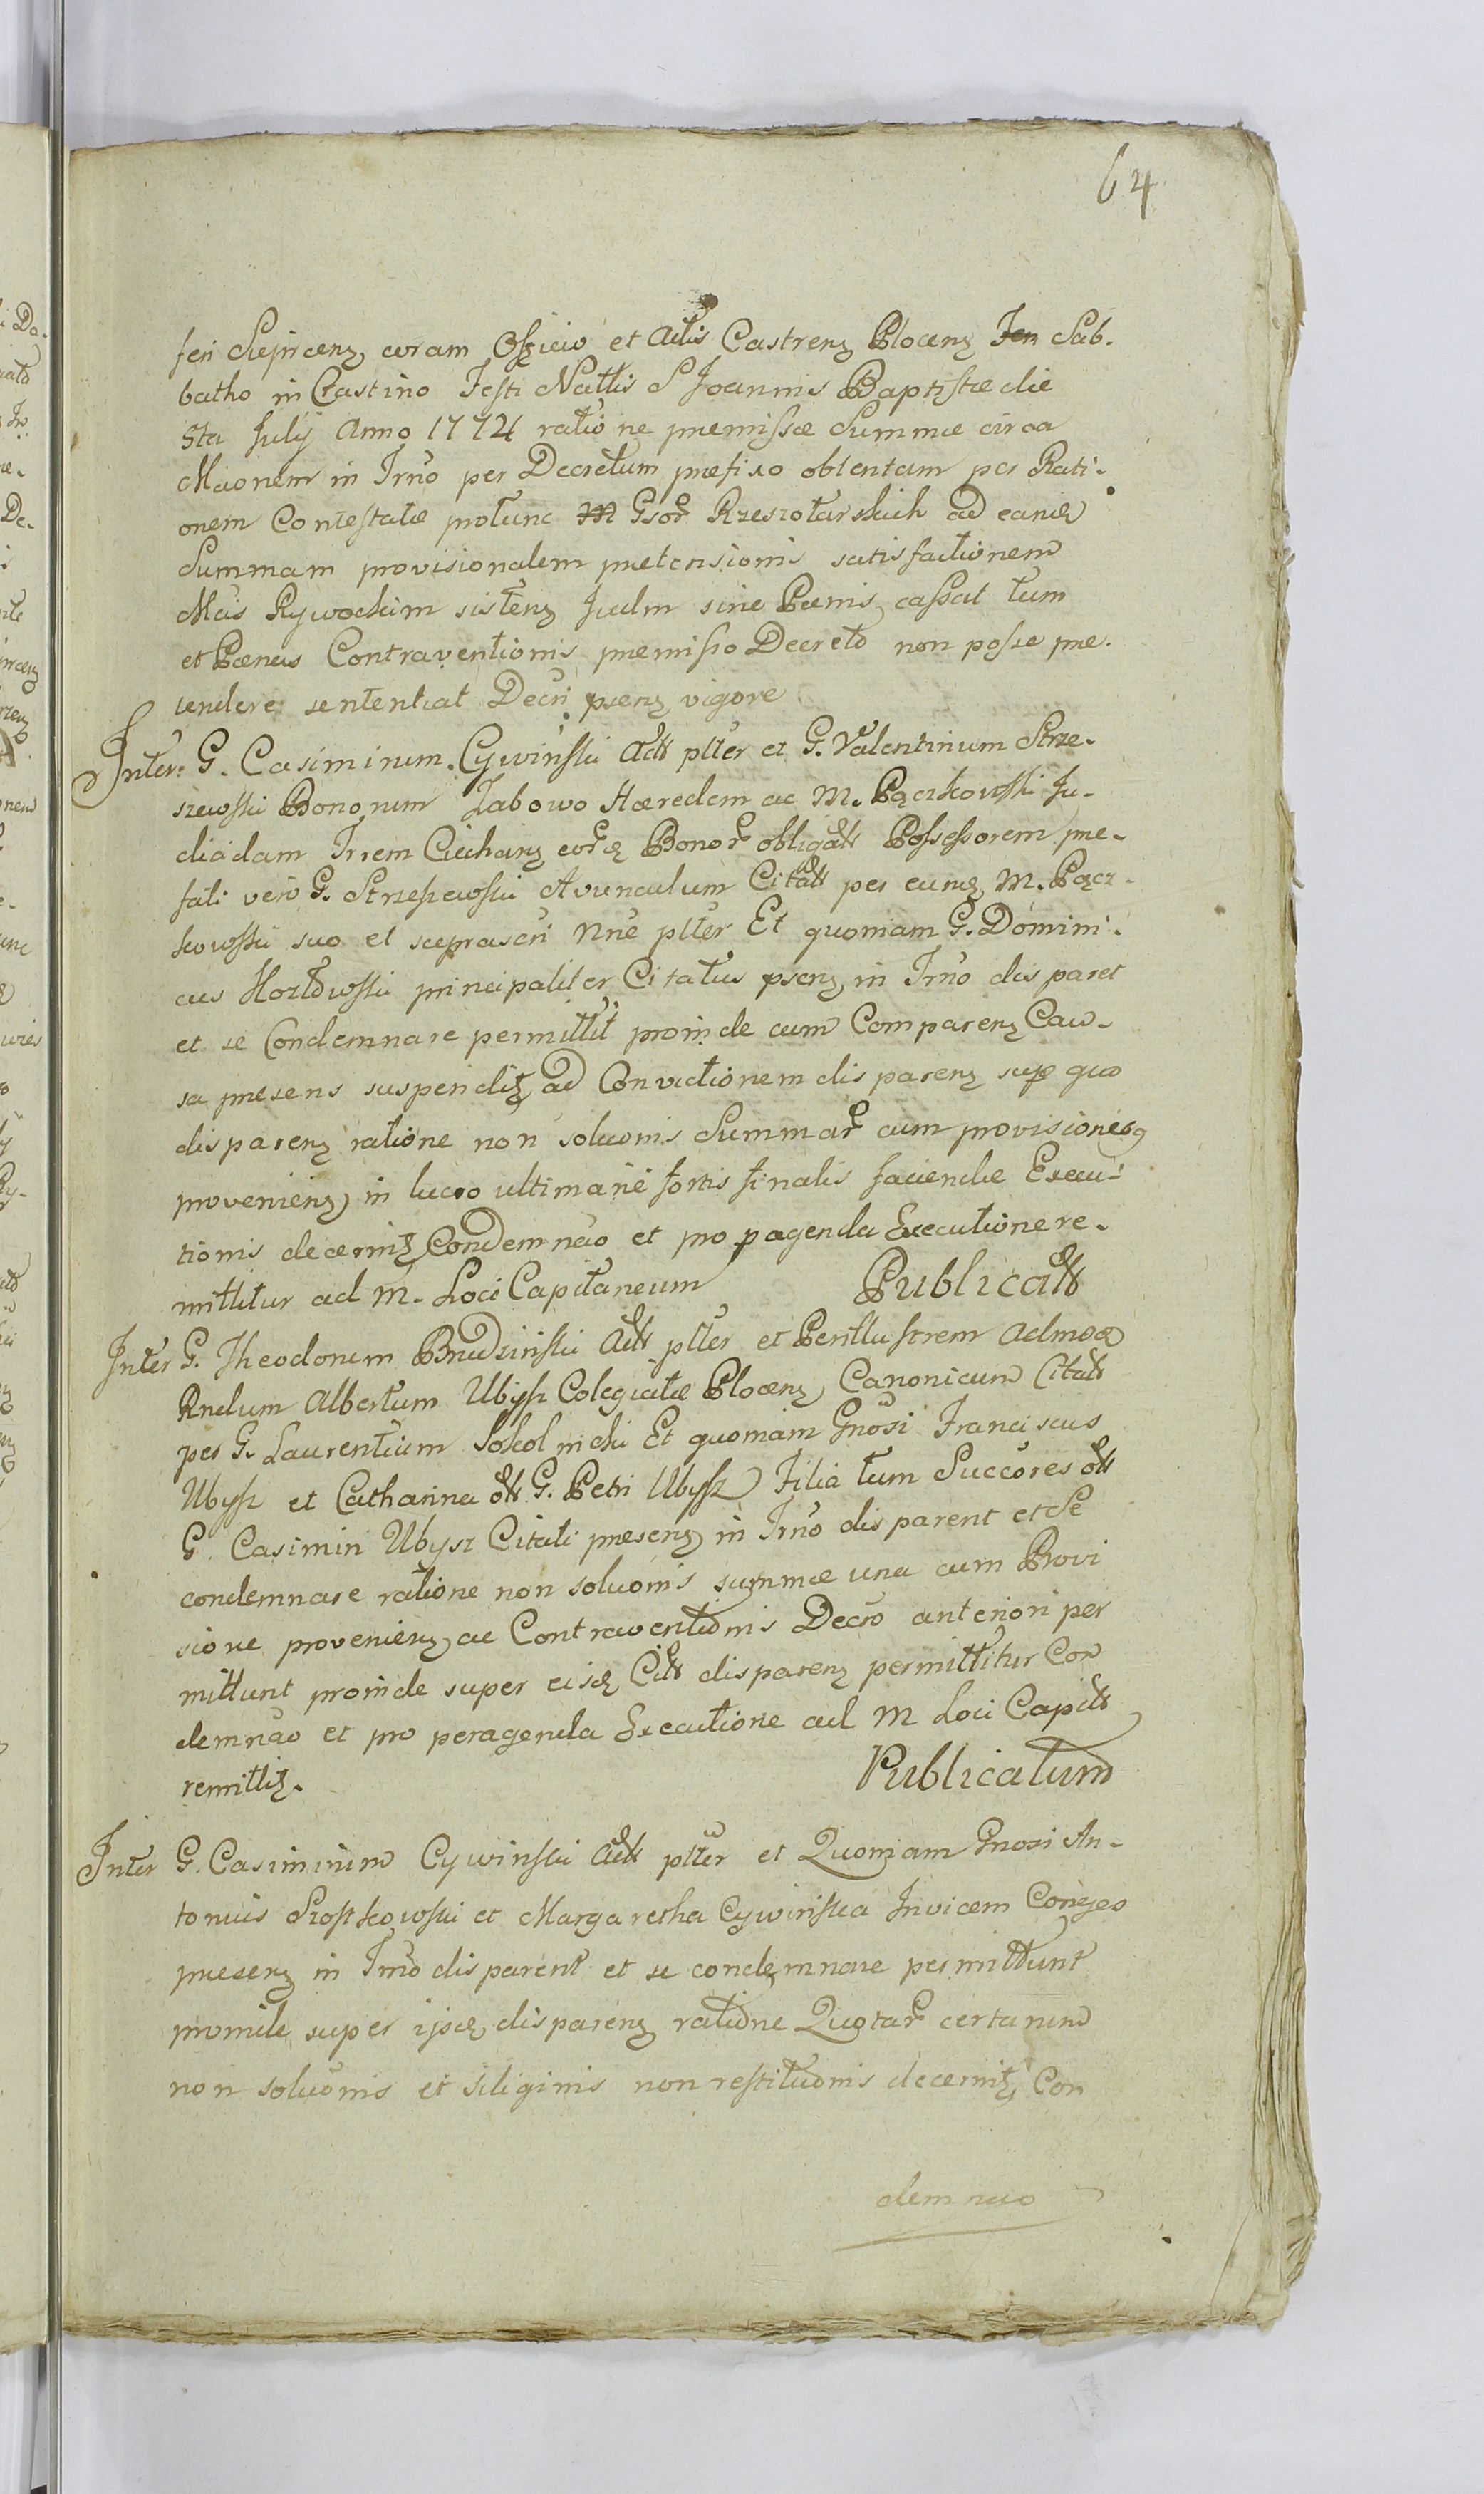 64
feri Sieprcens coram Officio et Actis Castrens Plocens Fer Sab-
batho in Crastino Festi Nattis S Joannis Baptistæ die
5ta Julij Anno 1774 ratione premissæ Summæ circa
Maonem in Trno per Decretum prefixo obtentam per Rati-
onem Contestatæ protunc M Gsor Rzeszotarskich ad eand
Summam provisionalem pretensionis satisfactionem
Mcis Rywockim sistens Judm sine Pœnis cassat tum
et Pœnas Contraventionis premisso Decreto non posse pre-
tendere sententiat Decri psens vigore
Inter G. Casimirum Cywinski Act plter et G. Valentinum Strze-
szewski Bonorum Łabowo Hæredem ac M. Pączkowski Ju-
dicidam Trrem Ciechans eord Bonor obligat Possessorem pre-
fati vero G. Strzeszewski Avunculum Citat per eund M. Pącz-
kowski suo et suprascri Nne plter Et quoniam G. Domini-
cus Kozłowski principaliter Citatus psens in Trno disparet
et se Condemnare permittit proinde cum Comparens Cau-
sa presens suspendit ad Convictionem disparens sup quo
disparens ratione non soluonis Summar cum provisioneq
proveniens in lucro ultimarie sortis finalis faciendæ Execu-
tionis decernit Condemnao et pro pagenda Executione re-
mittitur ad M. Loci Capitaneum Publicatt
Inter G. Theodorum Brudzinski Act plter et Perillustrem Admod
Rndum Albertum Ubysz Colegiatæ Plocens Canonicum Citat
per G. Laurentium Sokolnicki Et quoniam Gnosi Franciscus
Ubysz et Catharina ott G. Petri Ubysz Filia tum Succores ott
G. Casimiri Ubysz Citati presens in Trno disparent et Se
condemnare ratione non soluonis summæ una cum Provi
sione proveniens ac Contraventionis Decro anteriori per
mittunt proinde super eisd Citt disparens permittitur Con
demnao et pro peragenda Executione ad M Loci Capitt
remittit. Publicatum
Inter G. Casimirum Cywinski Act plter et Quoniam Gnosi An-
tonius Szostkowski et Margaretha Cywinska Invicem Conges
presens in Trno disparent et se condemnare permittunt
proinde super ijsd disparens ratione Quotar certarum
non soluonis et siliginis non restituonis decernit Con
demnao